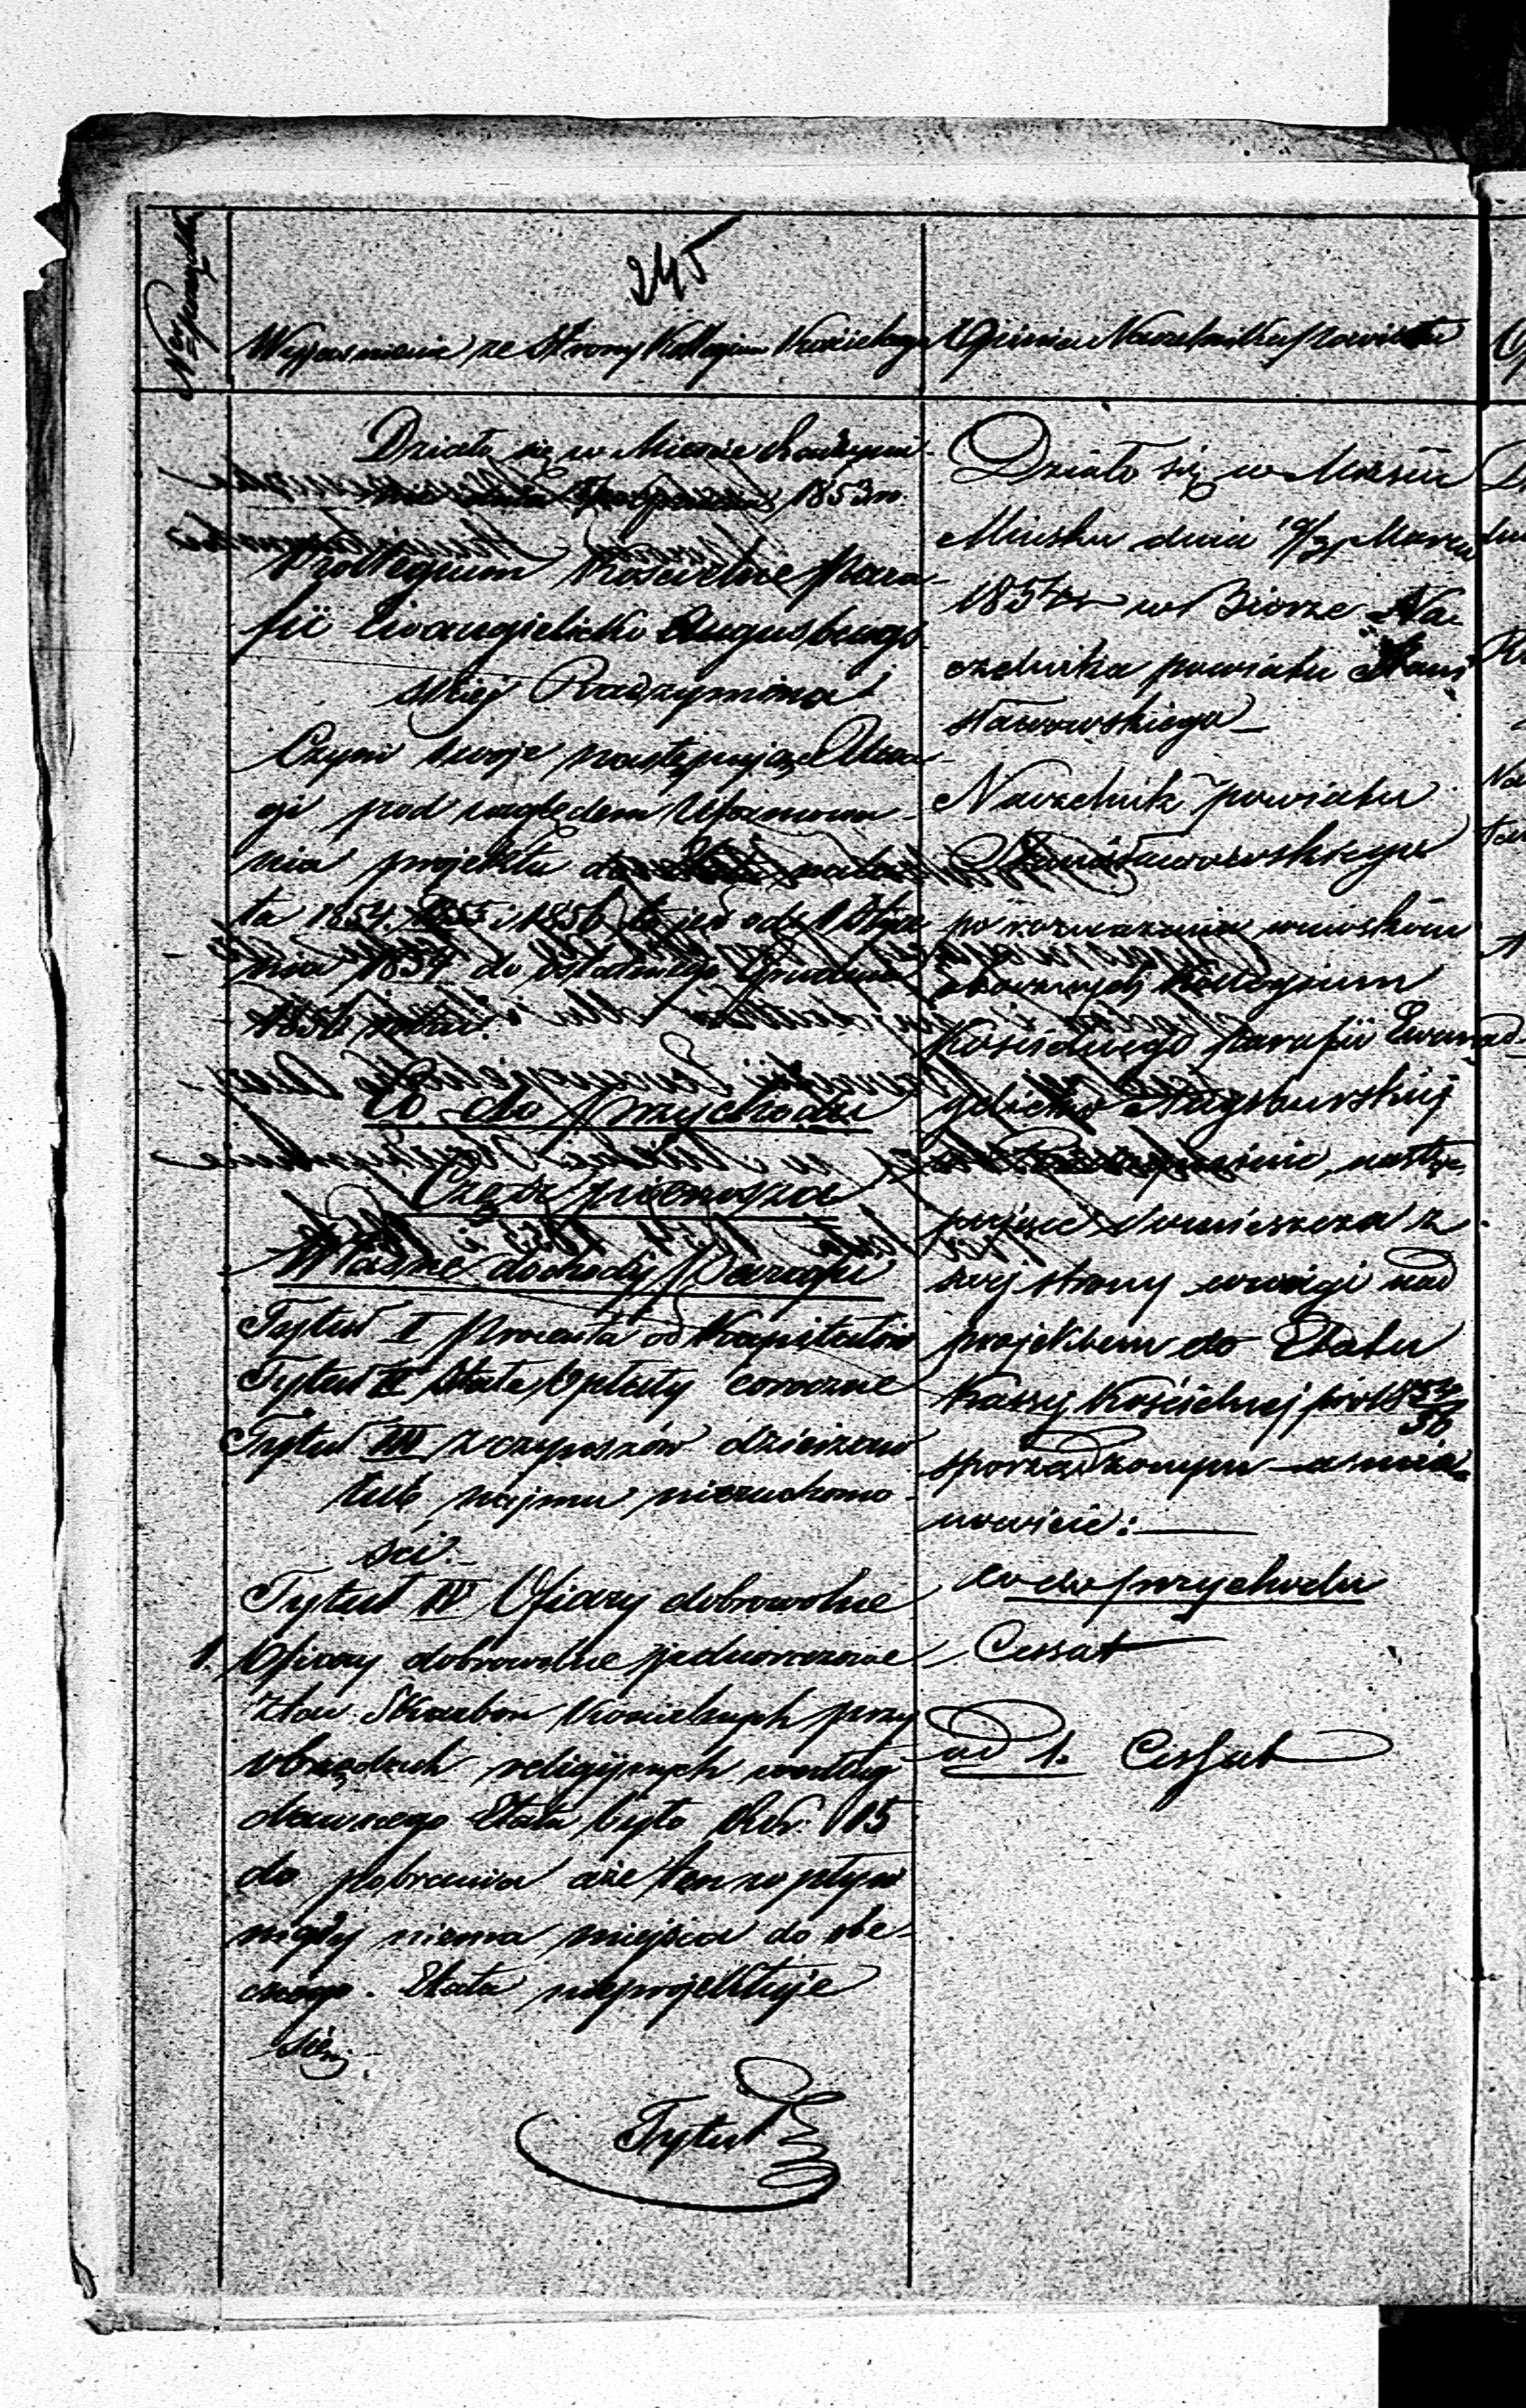 Nr porządku
245
Wyjaśnienie ze Strony Kollegium Kościelnego
Działo się w Mieście Radzymi-
1853 r.
Kollegium Kościelne Para-
fii Ewangielicko Augusburgs
skiej Radzymina
Czyni swoje następujące Uwa-
gi pod względem Uformowa-
nia projektu do na la-
ta 1854. 1855 i 1856 to jest od 1 Stycz
nia 1854 do ostatniego Grudnia
1856 roku.
Co do przychodu
Część pierwsza
Własne dochody Parafii
Tytuł I Procenta od Kapitałów
Tytuł II Stałe Opłaty coroczne
Tytuł III z czynszów dzierżaw
lub najmu nieruchomo-
ści.
Tytuł IV Ofiary dobrowolne
1. Ofiary dobrowolne jednorazowe
Skarbon Kościelnych przy
obrzędach religijnych według
dawnego Etatu było Rsr. 15
do pobrania ale ten wpływ
nigdy niema miejsca do obe-
cnego Etatu nieprojektuje
się.
Tytuł
Opinia Naczelnika Powiatu
Działo się w Mieście
Mińsku dnia Marca
1854 r w Biorze Na-
czelnika powiatu Stani
sławowskiego
Naczelnik powiatu
Stanisławowskiego
po rozważeniu wniosków
Kollegium
Kościelnego Parafii Ewan
gelicko Augsburskiej
w Radzyminie, nastę-
pujące zamieszcza z
swej strony uwagi nad
projektem do Etatu
Kassy Kościelnej pro 1854/56
sporządzonym a mia-
nowicie:
co do przychodu
Cessat
ad 1. Cessat